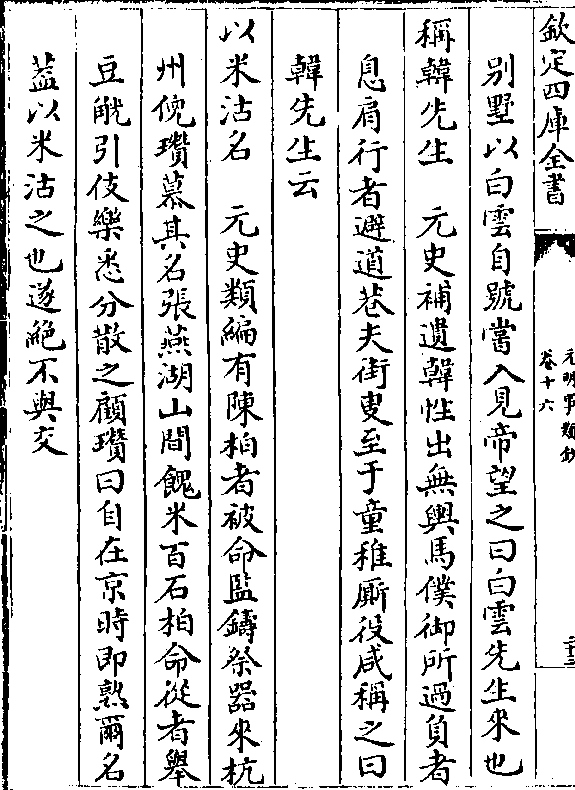 欽定四庫全書
元明事類鈔
卷十六
別墅以白雲自號嘗入見帝望之曰白雲先生來也
稱韓先生　元史補遺韓性出無輿馬僕御所過負者
息肩行者避道巷夫街叟至于童稚厮役咸稱之曰
韓先生云
以米沽名　元史類編有陳柏者被命監鑄祭器來杭
州倪瓚慕其名張燕湖山間餽米百石柏命從者舉
豆觥引伎樂悉分散之顧瓚曰自在京時即熟爾名
葢以米沽之也遂絕不與交